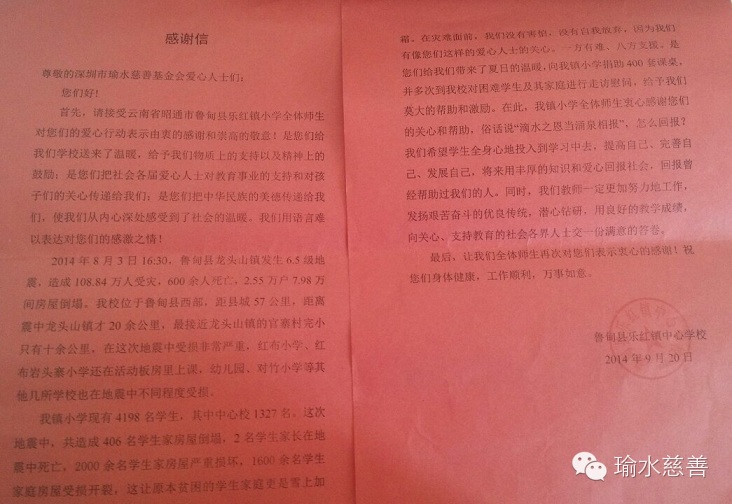 感谢信
尊敬的深圳市瑜水慈善基金会爱心人士们：
您们好！
首先，请接受云南省昭通市鲁甸县乐红镇小学全体师生
对您们的爱心行动表示由衷的感谢和崇高的敬意！是您们给
我们学校送来了温暖，给予我们物质上的支持以及精神上的
鼓励；是您们把社会各届爱心人士对教育事业的支持和对孩
子们的关心传递给我们；是您们把中华民族的美德传递给我
们，使我们从内心深处感受到了社会的温暖。我们用语言难
以表达对您们的感激之情！
2014年8月3日16:30，鲁甸县龙头山镇发生6.5级地
震，造成108.84万人受灾，600余人死亡，2.55万户7.98万
间房屋倒塌。我校位于鲁甸县西部，距县城57公里，距离
震中龙头山镇才20余公里，最接近龙头山镇的官寨村完小
只有十余公里，在这次地震中受损非常严重，红布小学、红
布岩头寨小学还在活动板房里上课，幼儿园、对竹小学等其
他几所学校也在地震中不同程度受损。
我镇小学现有4198名学生，其中中心校1327名。这次
地震中，共造成406名学生家房屋倒塌，2名学生家长在地
震中死亡，2000余名学生家房屋严重损坏，1600余名学生
家庭房屋受损开裂，这让原本贫困的学生家庭更是雪上加
霜。在灾难面前，我们没有害怕，没有自我放弃，因为我们
有像您们这样的爱心人士的关心。一方有难、八方支援，是
您们给我们带来了夏日的温暖，向我镇小学捐助400套课桌，
并多次到我校对困难学生及其家庭进行走访慰问，给予我们
莫大的帮助和激励。在此，我镇小学全体师生衷心感谢您们
的关心和帮助，俗话说“滴水之恩当涌泉相报”，怎么回报？
我们希望学生全身心地投入到学习中去，提高自己、完善自
己、发展自己，将来用丰厚的知识和爱心回报社会，回报曾
经帮助过我们的人。同时，我们教师一定更加努力地工作，
发扬艰苦奋斗的优良传统，潜心钻研，用良好的教学成绩，
向关心、支持教育的社会各界人士交一份满意的答卷。
最后，让我们全体师生再次对您们表示衷心的感谢！祝
您们身体健康，工作顺利，万事如意。
鲁甸县乐红镇中心学校
2014年9月20日
瑜水慈善